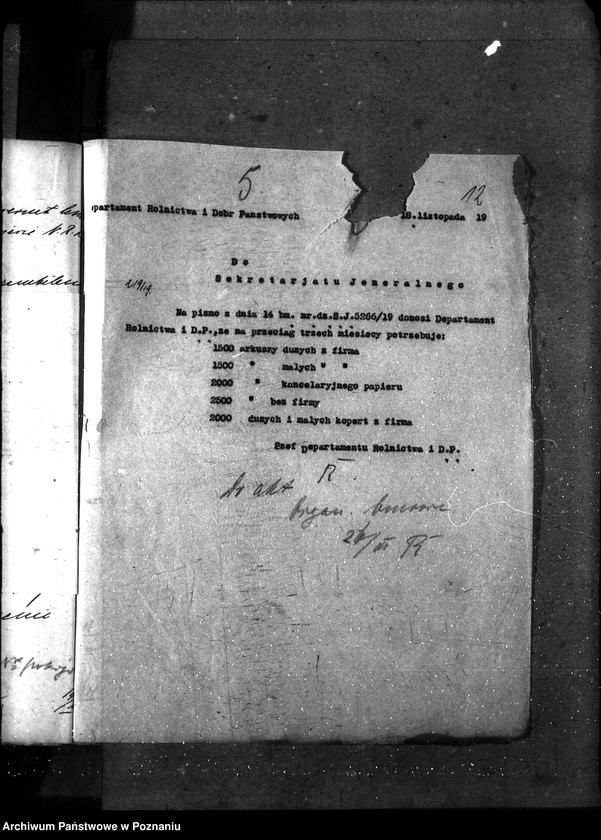 5
12
partament Rolnictwa i Dobr Panstwowych
18.listopada 19
Do
Sekretarjatu Jeneralnego
Na pismo z dnia 14 bm. nr.dz.S.J.5266/19 donosi Departament
Rolnictwa i D.P.,ze na przeciag trzech miesiecy potrzebuje:
1500 arkuszy duzych z firma
1500 " malych " "
2000 " kancelaryjnego papieru
2500 " bez firmy
2000 duzych i malych kopert z firma
Szef Departamentu Rolnictwa i D.P.
Do akt
Organ.
Archiwum Państwowe w Poznaniu